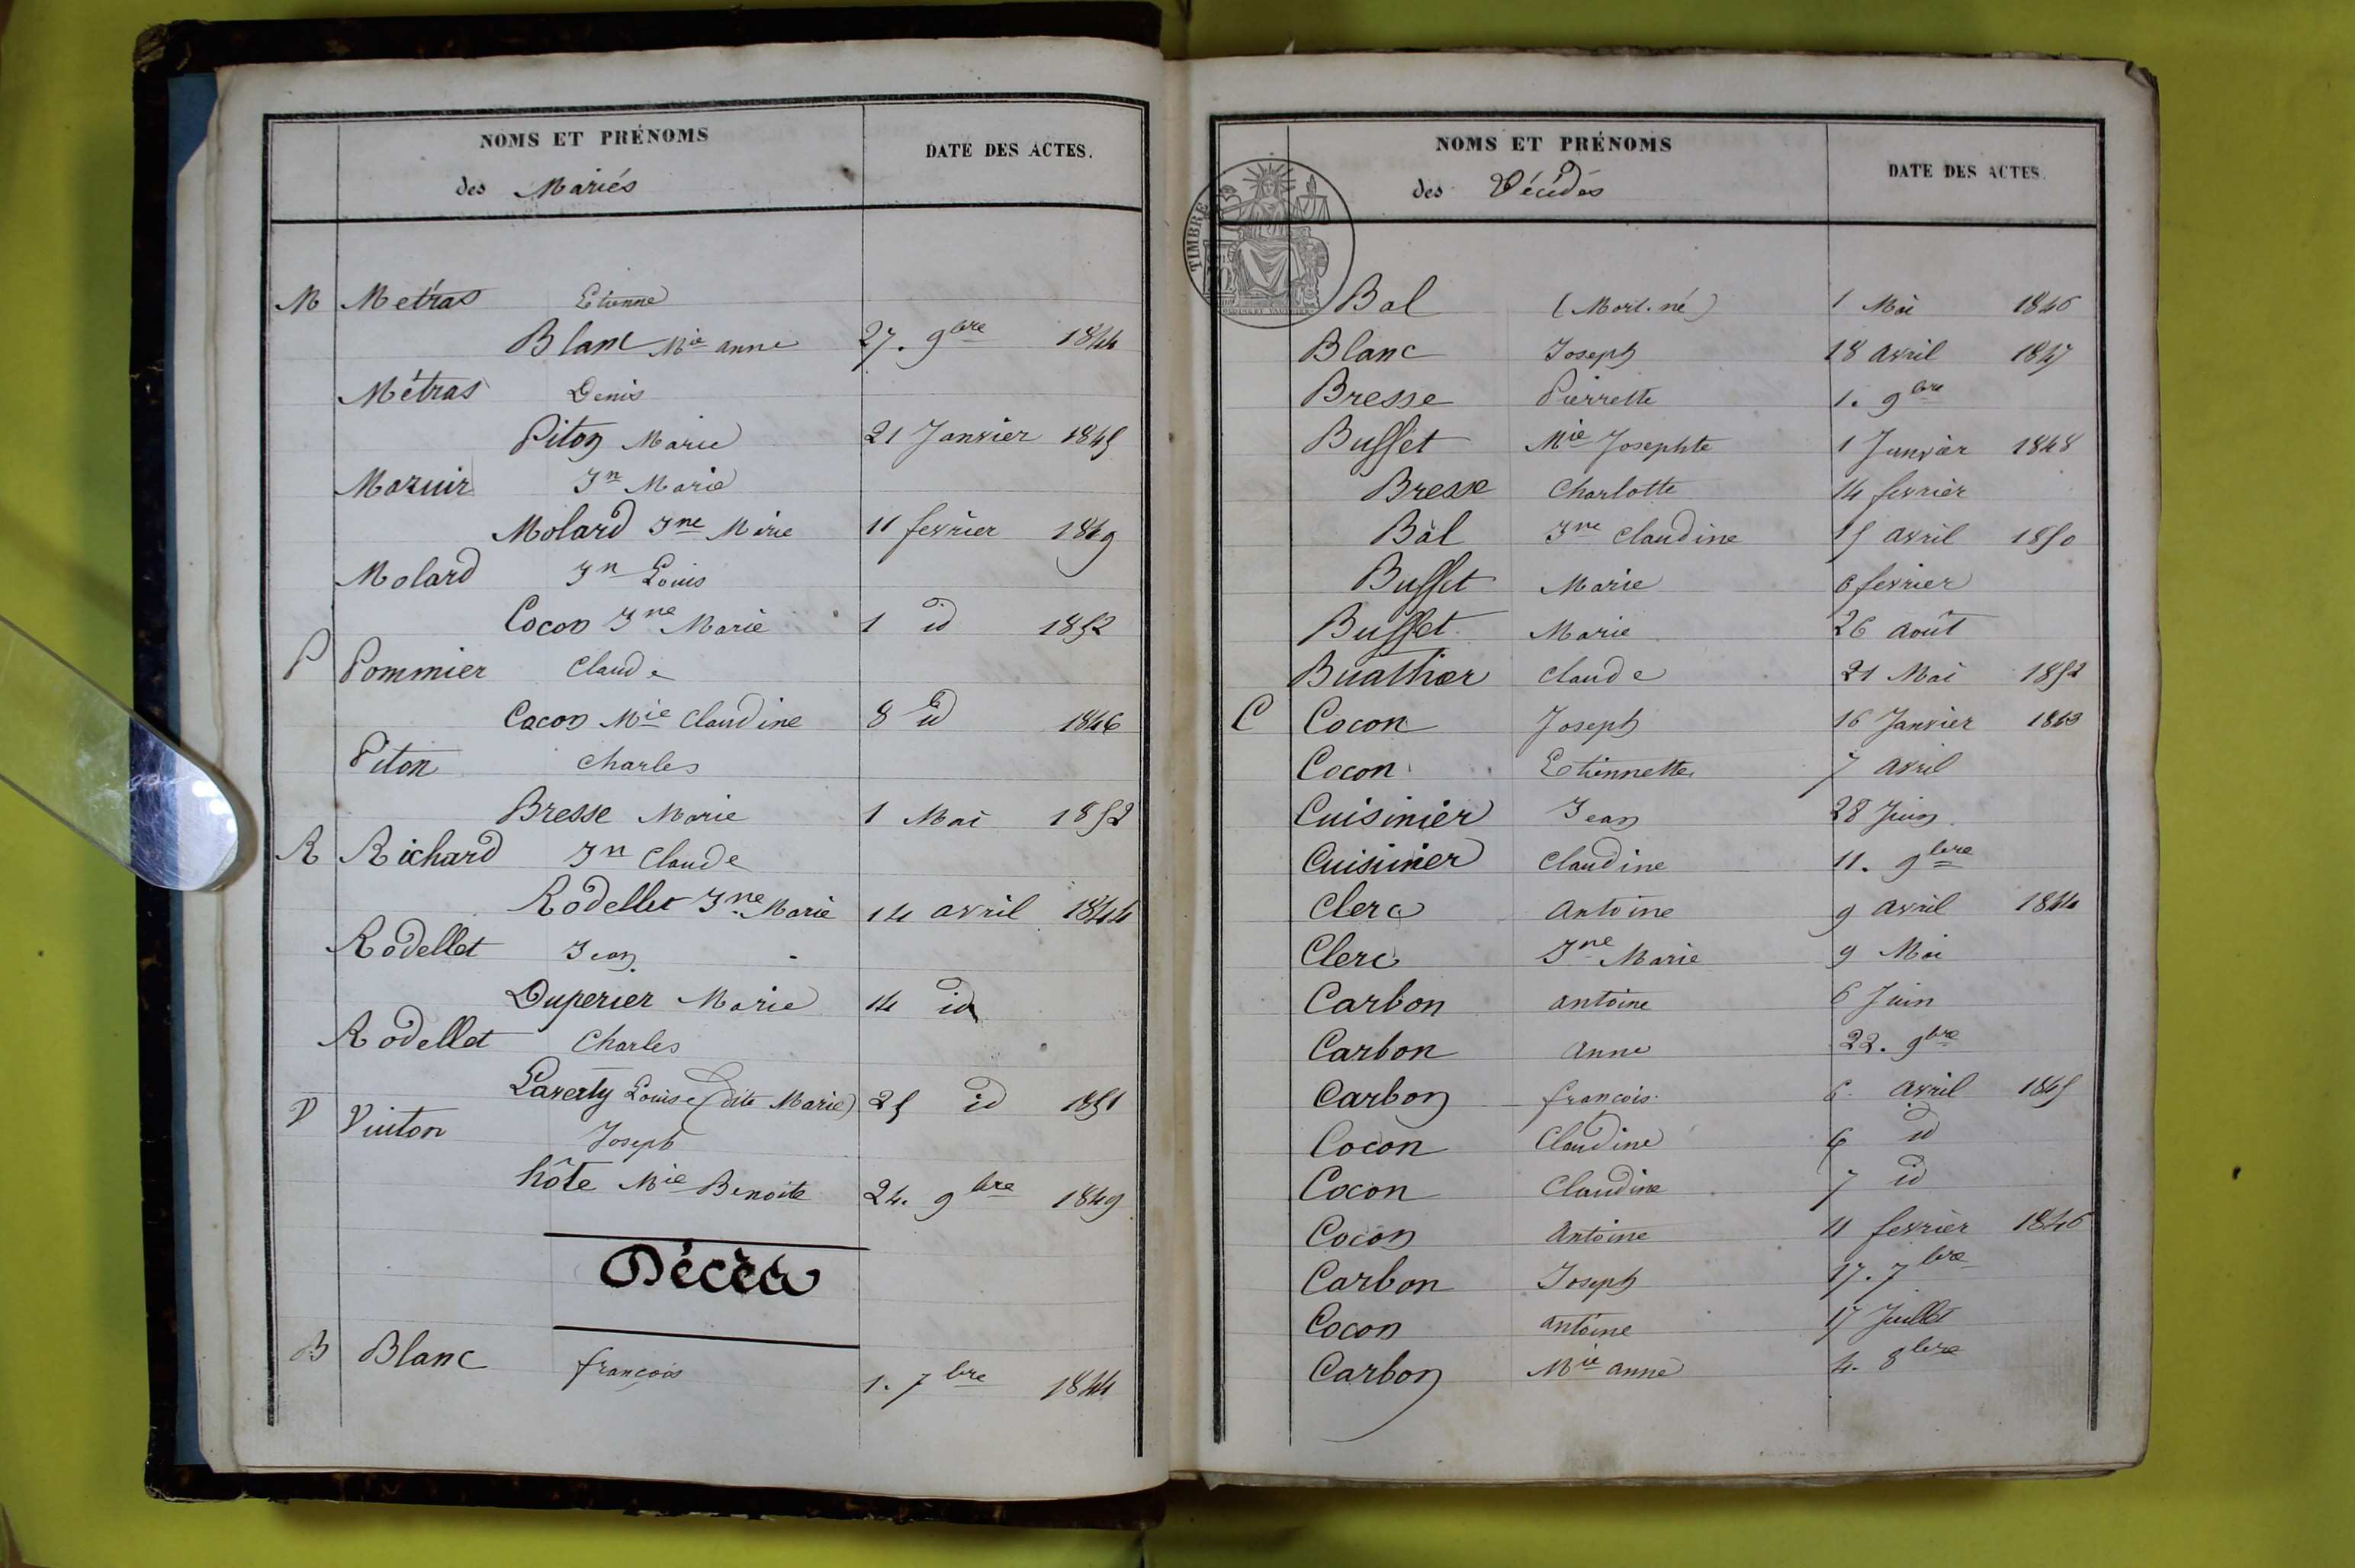 NOMS ET PRÉNOMS
DATE DES ACTES.
des Mariés
M Metras Etienne
Blanc Mie anne 27. 9bre 1844
Métras Denis
Piton Marie 21 Janvier 1845
Mazuir Jn Marie
Molard Jne Marie 11 fevrier 1849
Molard Jn Louis
Cocon Jne Marie 1 id 1852
P Pommier Claude
Cocon Mie Claudine 8 id 1846
Piton Charles
Bresse Marie 1 Mai 1852
R Richard Jn Claude
Rodellet Jne Marie 14 avril 1844
Rodellet Jean
Duperier Marie 14 id
Rodellet Charles
Laverty Louise (dite Marie) 25 id 1851
V Vuiton Joseph
hôte Mie Benoite 24. 9bre 1849
Décès
B Blanc françois 1. 7bre 1844
NOMS ET PRÉNOMS
DATE DES ACTES.
des Décédés
TIMBRE
Bal (Mort. né) 1 Mai 1846
Blanc Joseph 18 avril 1847
Bresse Pierrette 1. 9bre
Buffet Mie Josephte 1 Janvier 1848
Bresse Charlotte 14 fevrier
Bal Jne Claudine 15 avril 1850
Buffet Marie 6 fevrier
Buffet Marie 26 août
Buathier Claude 21 Mai 1852
C Cocon Joseph 16 Janvier 1843
Cocon Etiennette 7 avril
Cuisinier Jean 28 Juin
Cuisinier Claudine 11. 9bre
Clerc Antoine 9 avril 1844
Clerc Jne Marie 9 Mai
Carbon antoine 6 Juin
Carbon Anne 22. 9bre
Carbon françois 6 avril 1845
Cocon Claudine 6 id
Cocon Claudine 7 id
Cocon Antoine 11 fevrier 1846
Carbon Joseph 17. 7bre
Cocon antoine 17 Juillet
Carbon Mie anne 4. 8bre